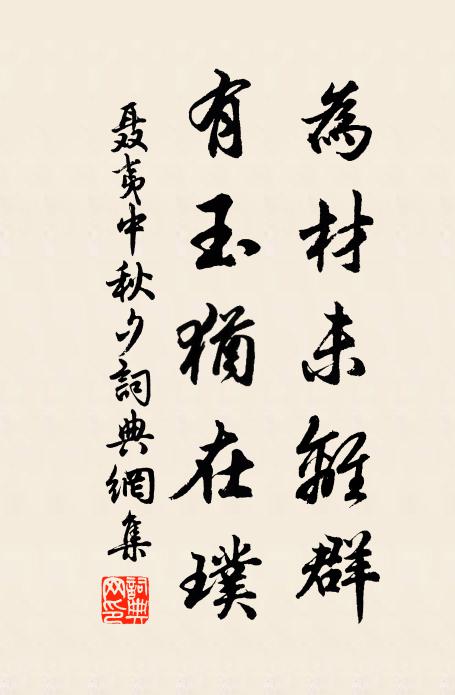 為材未離群
有玉猶在璞
聶夷中秋夕詞典網集
詞典網印